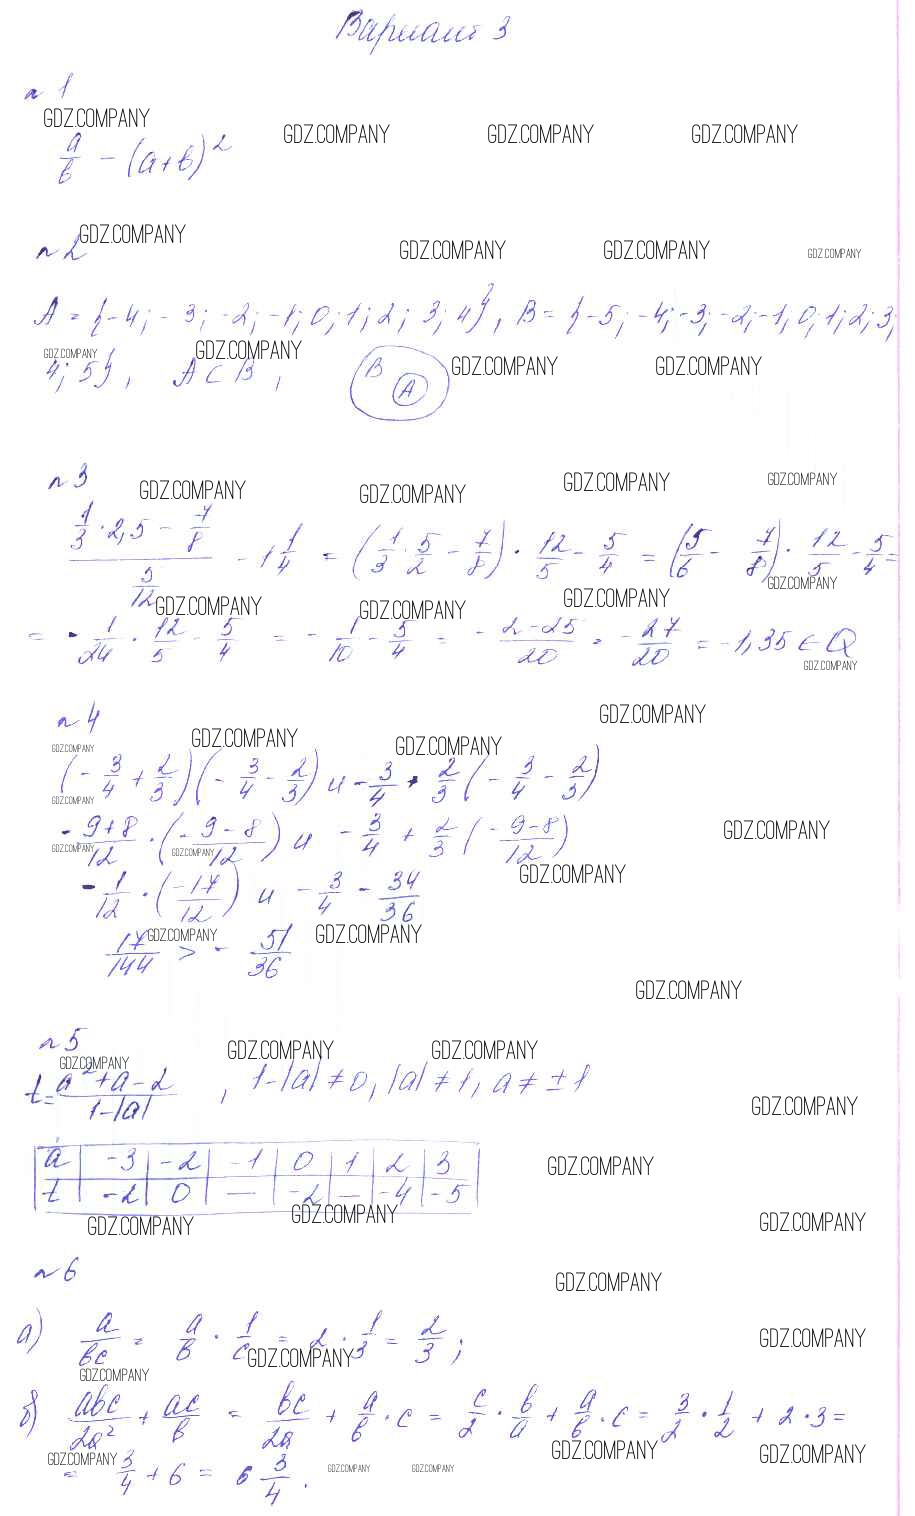 Вариант 3
n 1
GDZ.COMPANY GDZ.COMPANY GDZ.COMPANY GDZ.COMPANY
a/b - (a+b)^2
GDZ.COMPANY
n 2 GDZ.COMPANY GDZ.COMPANY GDZ.COMPANY
A = {-4; -3; -2; -1; 0; 1; 2; 3; 4}, B = {-5; -4; -3; -2; -1, 0, 1; 2; 3;
GDZ.COMPANY GDZ.COMPANY GDZ.COMPANY GDZ.COMPANY
4; 5}, A ⊂ B, B A
n 3 GDZ.COMPANY GDZ.COMPANY GDZ.COMPANY GDZ.COMPANY
(1/3 · 2,5 - 7/8)/(5/12) - 1 1/4 = (1/3 · 5/2 - 7/8) · 12/5 - 5/4 = (5/6 - 7/8) · 12/5 - 5/4 =
GDZ.COMPANY GDZ.COMPANY GDZ.COMPANY GDZ.COMPANY
= - 1/24 · 12/5 - 5/4 = - 1/10 - 5/4 = (-2-25)/20 = - 27/20 = -1,35 ∈ Q
GDZ.COMPANY
n 4 GDZ.COMPANY
GDZ.COMPANY GDZ.COMPANY GDZ.COMPANY
(- 3/4 + 2/3)(- 3/4 - 2/3) и - 3/4 + 2/3 (- 3/4 - 2/3)
GDZ.COMPANY GDZ.COMPANY
(-9+8)/12 · ((-9-8)/12) и - 3/4 + 2/3 ((-9-8)/12)
GDZ.COMPANY GDZ.COMPANY GDZ.COMPANY
- 1/12 · (-17/12) и - 3/4 - 34/36
GDZ.COMPANY GDZ.COMPANY
17/144 > - 51/36
GDZ.COMPANY
n 5
GDZ.COMPANY GDZ.COMPANY GDZ.COMPANY
t = (a^2+a-2)/(1-|a|), 1-|a| ≠ 0, |a| ≠ 1, a ≠ ±1
GDZ.COMPANY
a -3 -2 -1 0 1 2 3 GDZ.COMPANY
t -2 0 — -2 — -4 -5
GDZ.COMPANY GDZ.COMPANY GDZ.COMPANY
n 6 GDZ.COMPANY
а) a/bc = a/b · 1/c = 2 · 1/3 = 2/3; GDZ.COMPANY
GDZ.COMPANY GDZ.COMPANY
б) abc/2a^2 + ac/b = bc/2a + a/b · c = c/2 · b/a + a/b · c = 3/2 · 1/2 + 2 · 3 =
GDZ.COMPANY GDZ.COMPANY GDZ.COMPANY
= 3/4 + 6 = 6 3/4. GDZ.COMPANY GDZ.COMPANY